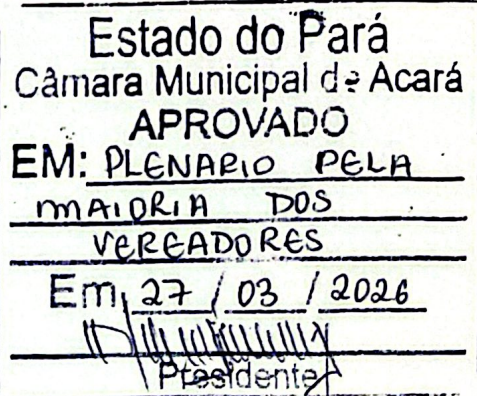 Estado do Pará
Câmara Municipal de Acará
APROVADO
EM: PLENARIO PELA
MAIORIA DOS
VEREADORES
Em 27 / 03 / 2026
Presidente